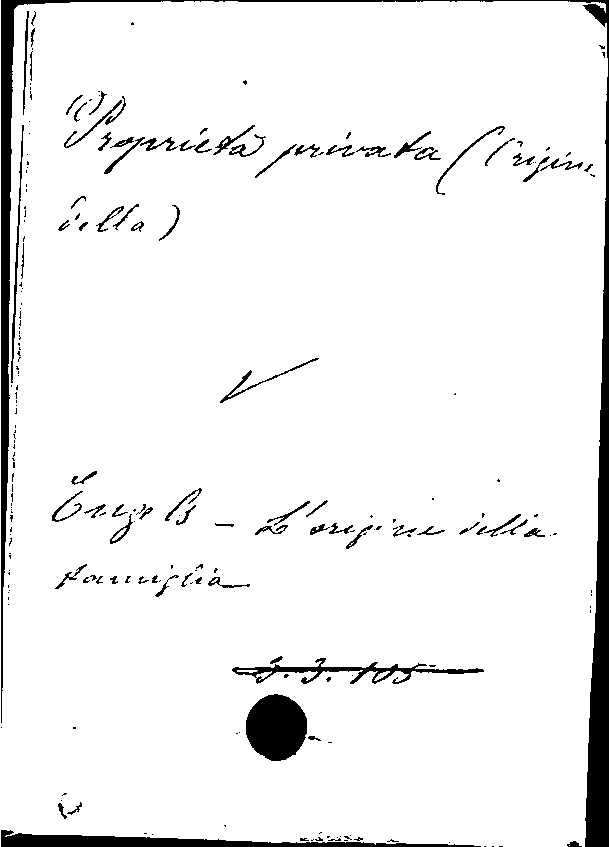 Proprietà privata (Origine
della)
V
Engels - L'origine della
famiglia
3. 3. 105